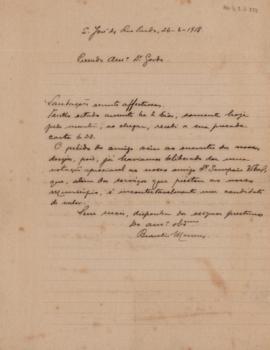 S. José do Rio Pardo, 26-2-1918
Presado Amº. Dr. Godoy
Saudações muito affectuosas.
Tendo estado ausente ha 4 dias, somente hoje
pela manhã, ao chegar, recebi a sua presada
carta de 22.
O pedido do amigo veiu ao encontro do nosso
desejo, pois, já haviamos deliberado dar uma
votação apreciavel ao nosso amigo Dr. Sampaio
que, alem dos serviços que prestou ao nosso
municipio, é incontestavelmente um candidato
de valor.
Sem mais, disponha do exiguo prestimo
do amº. obº.